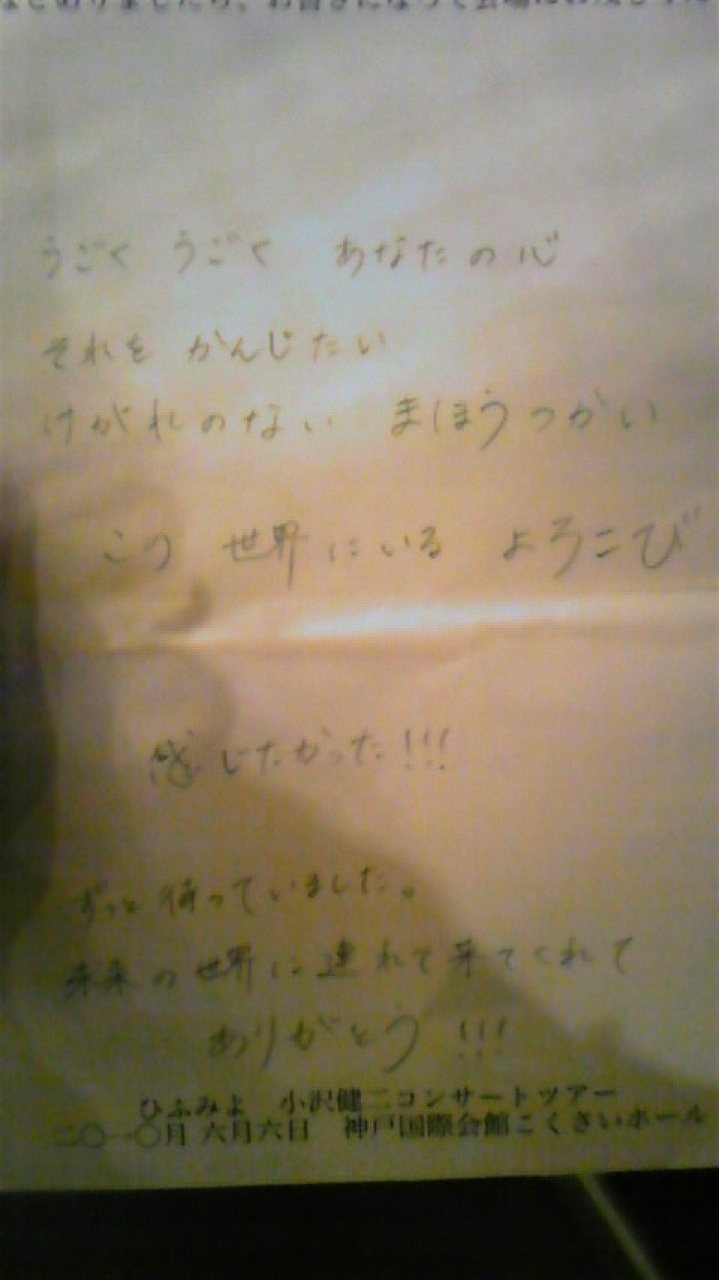 うごく うごく あなたの心
それを かんじたい
けがれのない まほうつかい
この 世界にいる よろこび
感じたかった!!!
ずっと待っていました。
未来の世界に連れて来てくれて
ありがとう!!!
ひふみよ 小沢健二コンサートツアー
二〇一〇月 六月六日 神戸国際会館こくさいホール